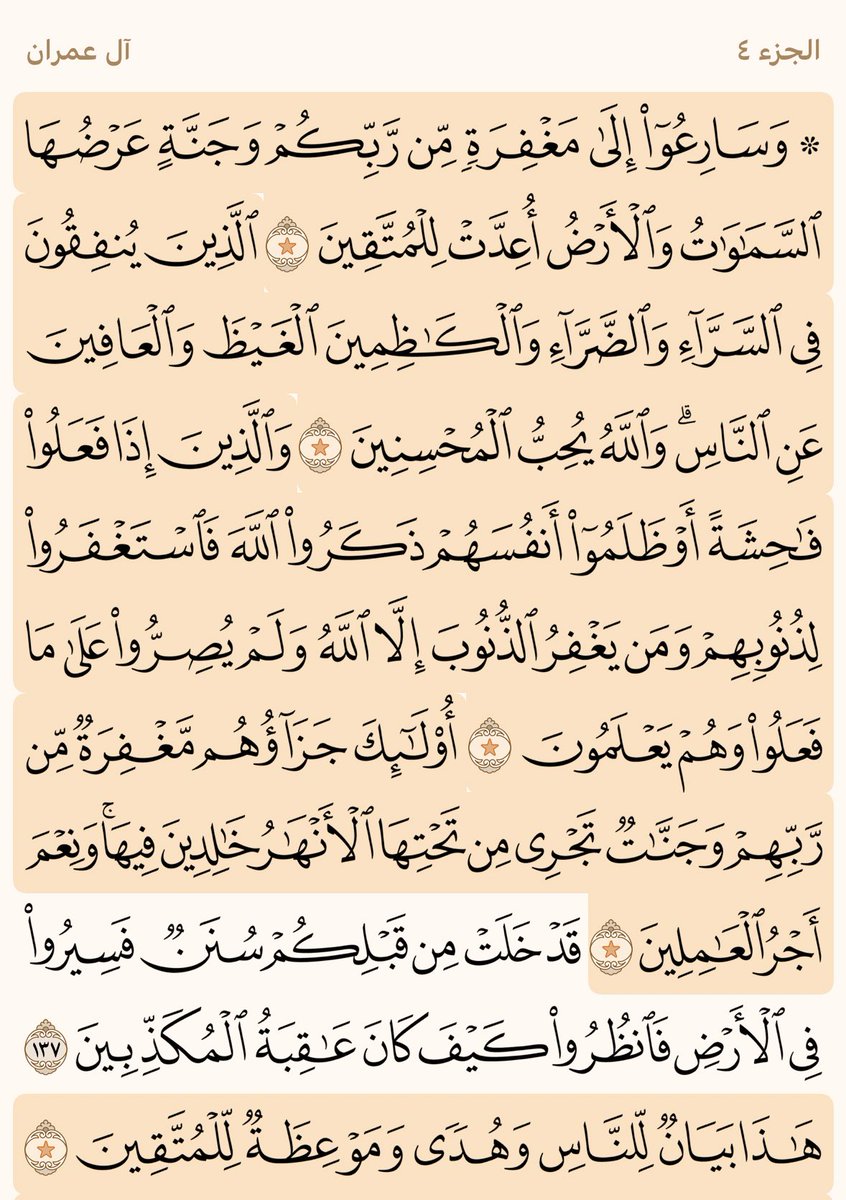 الجزء ٤
آل عمران
* وَسَارِعُوٓاْ إِلَىٰ مَغۡفِرَةٖ مِّن رَّبِّكُمۡ وَجَنَّةٍ عَرۡضُهَا
ٱلسَّمَٰوَٰتُ وَٱلۡأَرۡضُ أُعِدَّتۡ لِلۡمُتَّقِينَ ٱلَّذِينَ يُنفِقُونَ
فِي ٱلسَّرَّآءِ وَٱلضَّرَّآءِ وَٱلۡكَٰظِمِينَ ٱلۡغَيۡظَ وَٱلۡعَافِينَ
عَنِ ٱلنَّاسِۗ وَٱللَّهُ يُحِبُّ ٱلۡمُحۡسِنِينَ وَٱلَّذِينَ إِذَا فَعَلُواْ
فَٰحِشَةً أَوۡ ظَلَمُوٓاْ أَنفُسَهُمۡ ذَكَرُواْ ٱللَّهَ فَٱسۡتَغۡفَرُواْ
لِذُنُوبِهِمۡ وَمَن يَغۡفِرُ ٱلذُّنُوبَ إِلَّا ٱللَّهُ وَلَمۡ يُصِرُّواْ عَلَىٰ مَا
فَعَلُواْ وَهُمۡ يَعۡلَمُونَ أُوْلَٰٓئِكَ جَزَآؤُهُم مَّغۡفِرَةٞ مِّن
رَّبِّهِمۡ وَجَنَّٰتٞ تَجۡرِي مِن تَحۡتِهَا ٱلۡأَنۡهَٰرُ خَٰلِدِينَ فِيهَاۚ وَنِعۡمَ
أَجۡرُ ٱلۡعَٰمِلِينَ قَدۡ خَلَتۡ مِن قَبۡلِكُمۡ سُنَنٞ فَسِيرُواْ
فِي ٱلۡأَرۡضِ فَٱنظُرُواْ كَيۡفَ كَانَ عَٰقِبَةُ ٱلۡمُكَذِّبِينَ ١٣٧
هَٰذَا بَيَانٞ لِّلنَّاسِ وَهُدٗى وَمَوۡعِظَةٞ لِّلۡمُتَّقِينَ